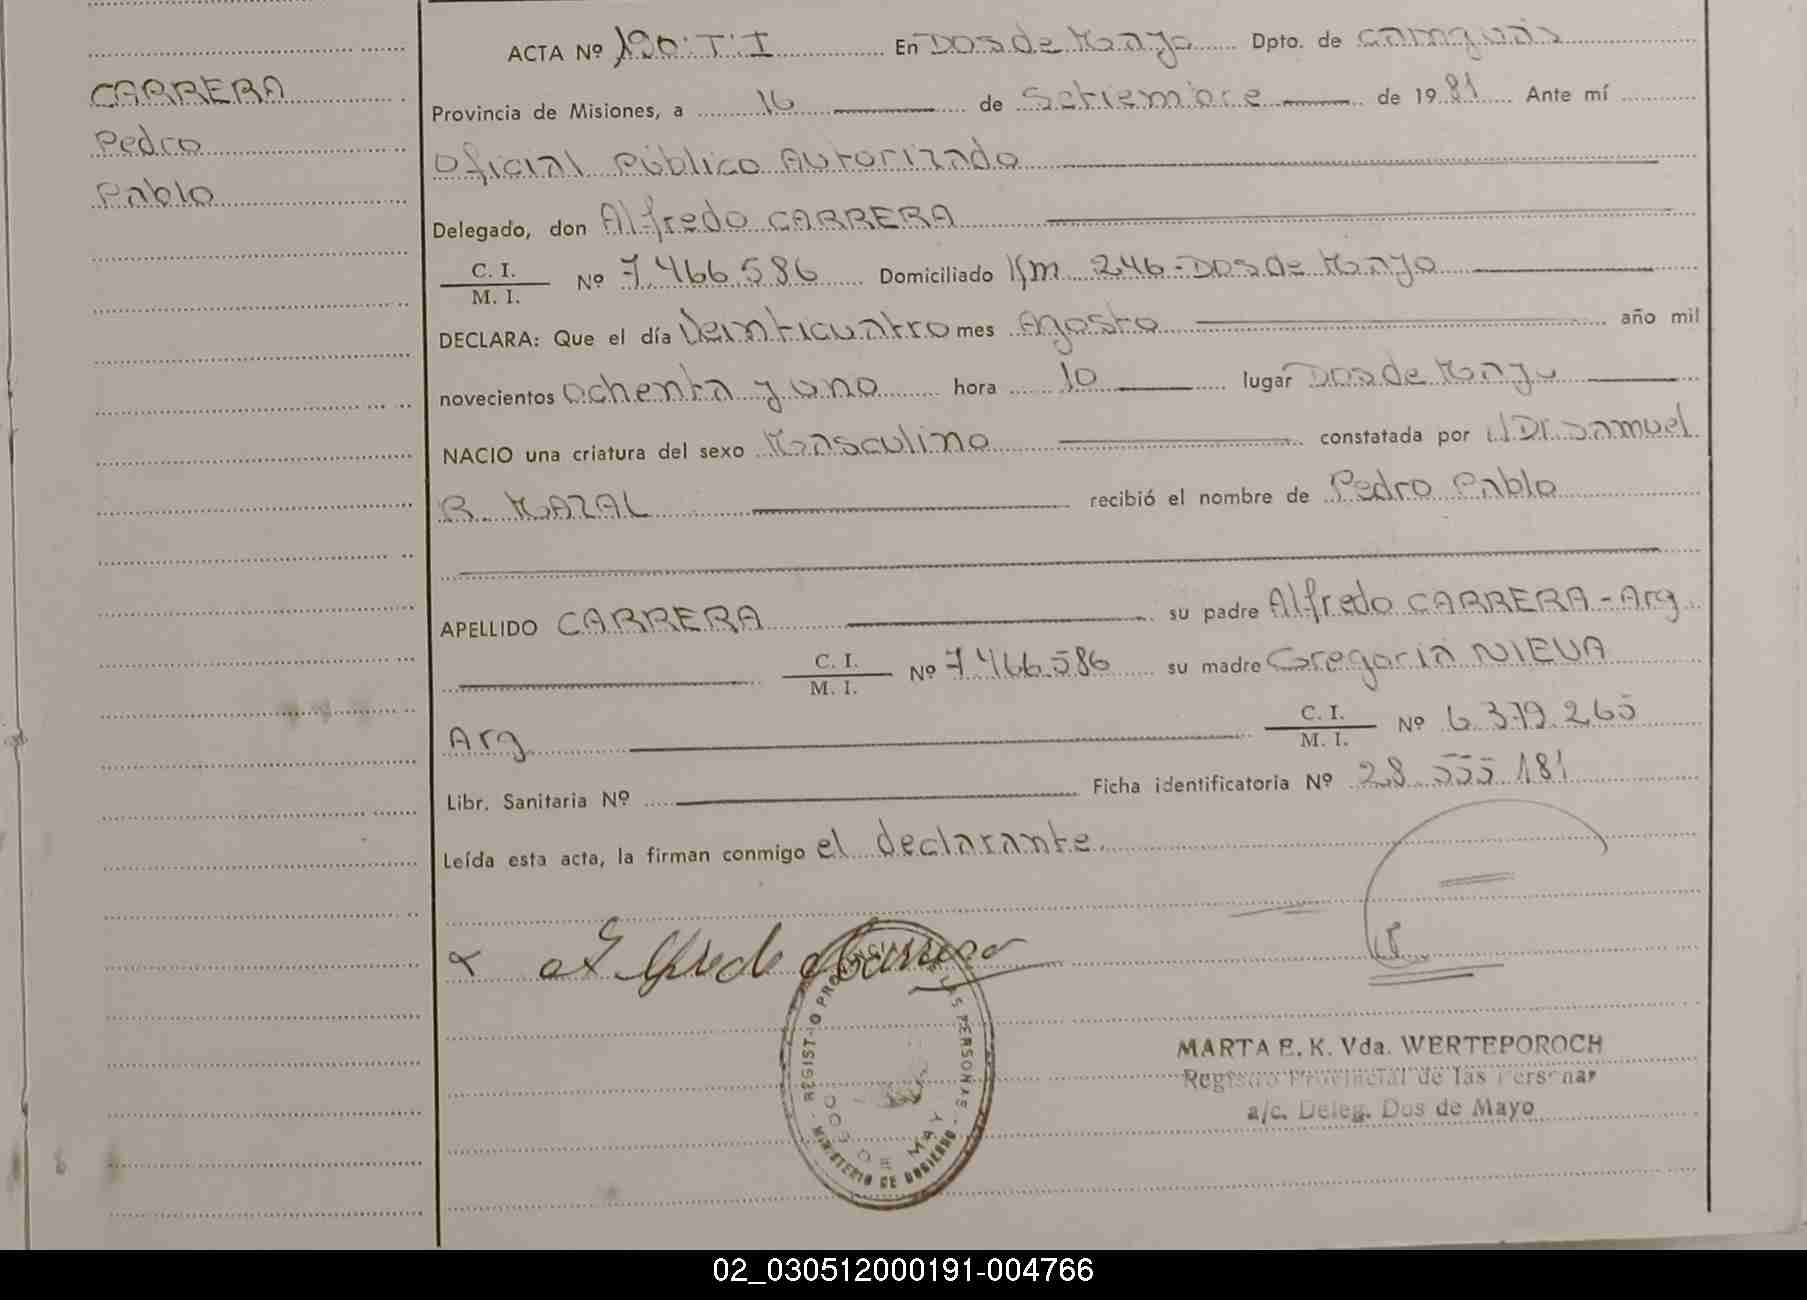 CARRERA
Pedro
Pablo
ACTA Nº 190·T·I En Dos de Mayo Dpto. de Cainguás
Provincia de Misiones, a 16 de Setiembre de 1981 Ante mí
Oficial Público Autorizado
Delegado, don Alfredo CARRERA
C. I. / M. I. Nº 7.466.586 Domiciliado Km 246-Dos de Mayo
DECLARA: Que el día Veinticuatro mes Agosto año mil
novecientos Ochenta y uno hora 10 lugar Dos de Mayo
NACIO una criatura del sexo Masculino constatada por Dr Samuel
R. MAZAL recibió el nombre de Pedro Pablo
APELLIDO CARRERA su padre Alfredo CARRERA - Arg
C. I. / M. I. Nº 7.466.586 su madre Gregoria NIEVA
Arg C. I. / M. I. Nº 6.379.265
Libr. Sanitaria Nº Ficha identificatoria Nº 28.555.181
Leída esta acta, la firman conmigo el declarante
Alfredo Carrera
REGISTRO PROVINCIAL DE LAS PERSONAS
MINISTERIO DE GOBIERNO
DOS DE MAYO
MARTA E. K. Vda. WERTEPOROCH
Registro Provincial de las Personas
a/c. Deleg. Dos de Mayo
02_030512000191-004766